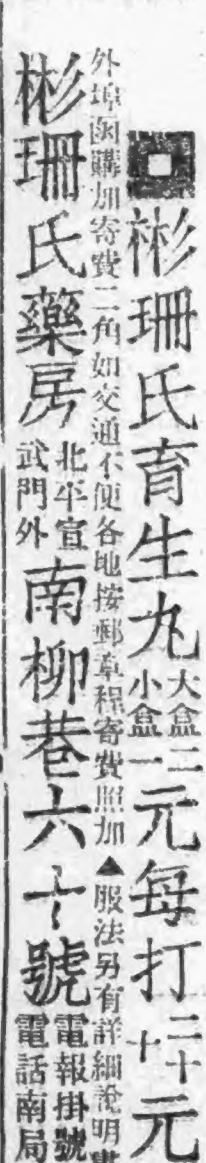 彬珊氏育生丸大盒二小盒一元每打二十十元
外埠函購加寄費二角如交通不便各地按郵章程寄費照加▲服法另有詳細說明書
彬珊氏藥房北平宣武門外南柳巷六十號電報掛號電話南局